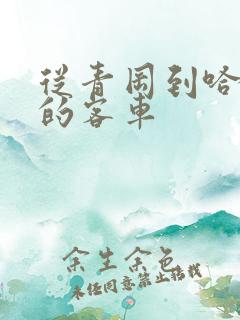 從青岡到哈
的客車
余生余色
未经同意禁止搭载